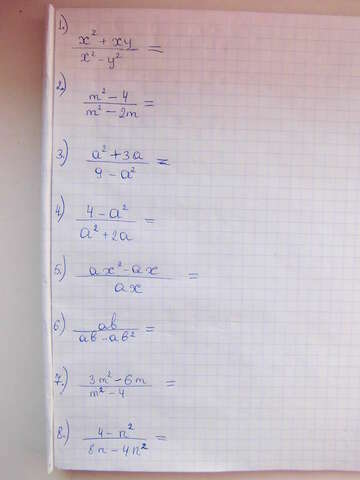 1.) (x² + xy)/(x² - y²) =
2.) (m² - 4)/(m² - 2m) =
3.) (a² + 3a)/(9 - a²) =
4) (4 - a²)/(a² + 2a) =
5.) (ax² - ax)/(ax) =
6.) (ab)/(ab - ab²) =
7.) (3m² - 6m)/(m² - 4) =
8.) (4 - n²)/(8n - 4n²) =